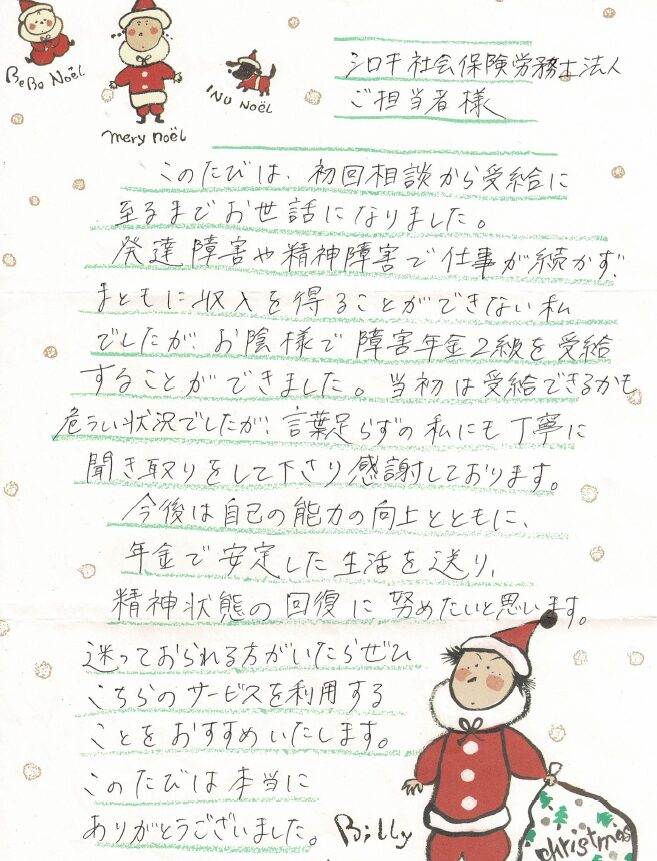 BeBo Noël
mery noël
INU NOËL
シロチ社会保険労務士法人
ご担当者様
このたびは、初回相談から受給に
至るまでお世話になりました。
発達障害や精神障害で仕事が続かず、
まともに収入を得ることができない私
でしたが、お陰様で障害年金2級を受給
することができました。当初は受給できるかも
危うい状況でしたが、言葉足らずの私にも丁寧に
聞き取りをして下さり感謝しております。
今後は自己の能力の向上とともに、
年金で安定した生活を送り、
精神状態の回復に努めたいと思います。
迷っておられる方がいたらぜひ
こちらのサービスを利用する
ことをおすすめいたします。
このたびは本当に
ありがとうございました。
Billy
christmas